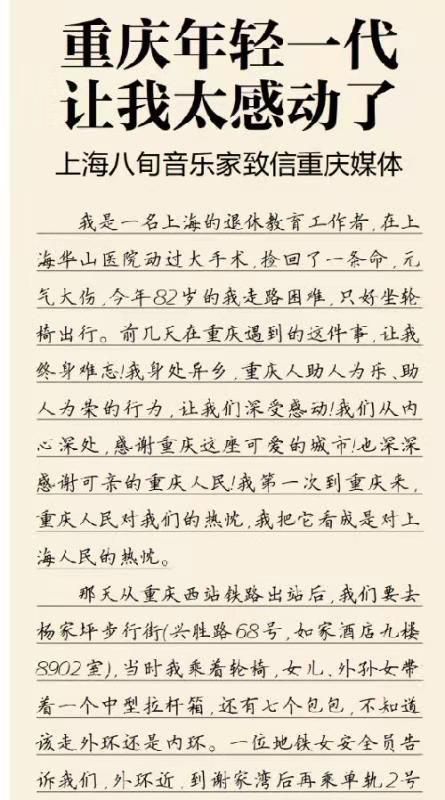 重庆年轻一代
让我太感动了
上海八旬音乐家致信重庆媒体
我是一名上海的退休教育工作者,在上
海华山医院动过大手术,捡回了一条命,元
气大伤,今年82岁的我走路困难,只好坐轮
椅出行。前几天在重庆遇到的这件事,让我
终身难忘!我身处异乡,重庆人助人为乐、助
人为荣的行为,让我们深受感动!我们从内
心深处,感谢重庆这座可爱的城市!也深深
感谢可亲的重庆人民!我第一次到重庆来,
重庆人民对我们的热忱,我把它看成是对上
海人民的热忱。
那天从重庆西站铁路出站后,我们要去
杨家坪步行街(兴胜路68号,如家酒店九楼
8902室),当时我乘着轮椅,女儿、外孙女带
着一个中型拉杆箱,还有七个包包,不知道
该走外环还是内环。一位地铁女安全员告
诉我们,外环近,到谢家湾后再乘单轨2号